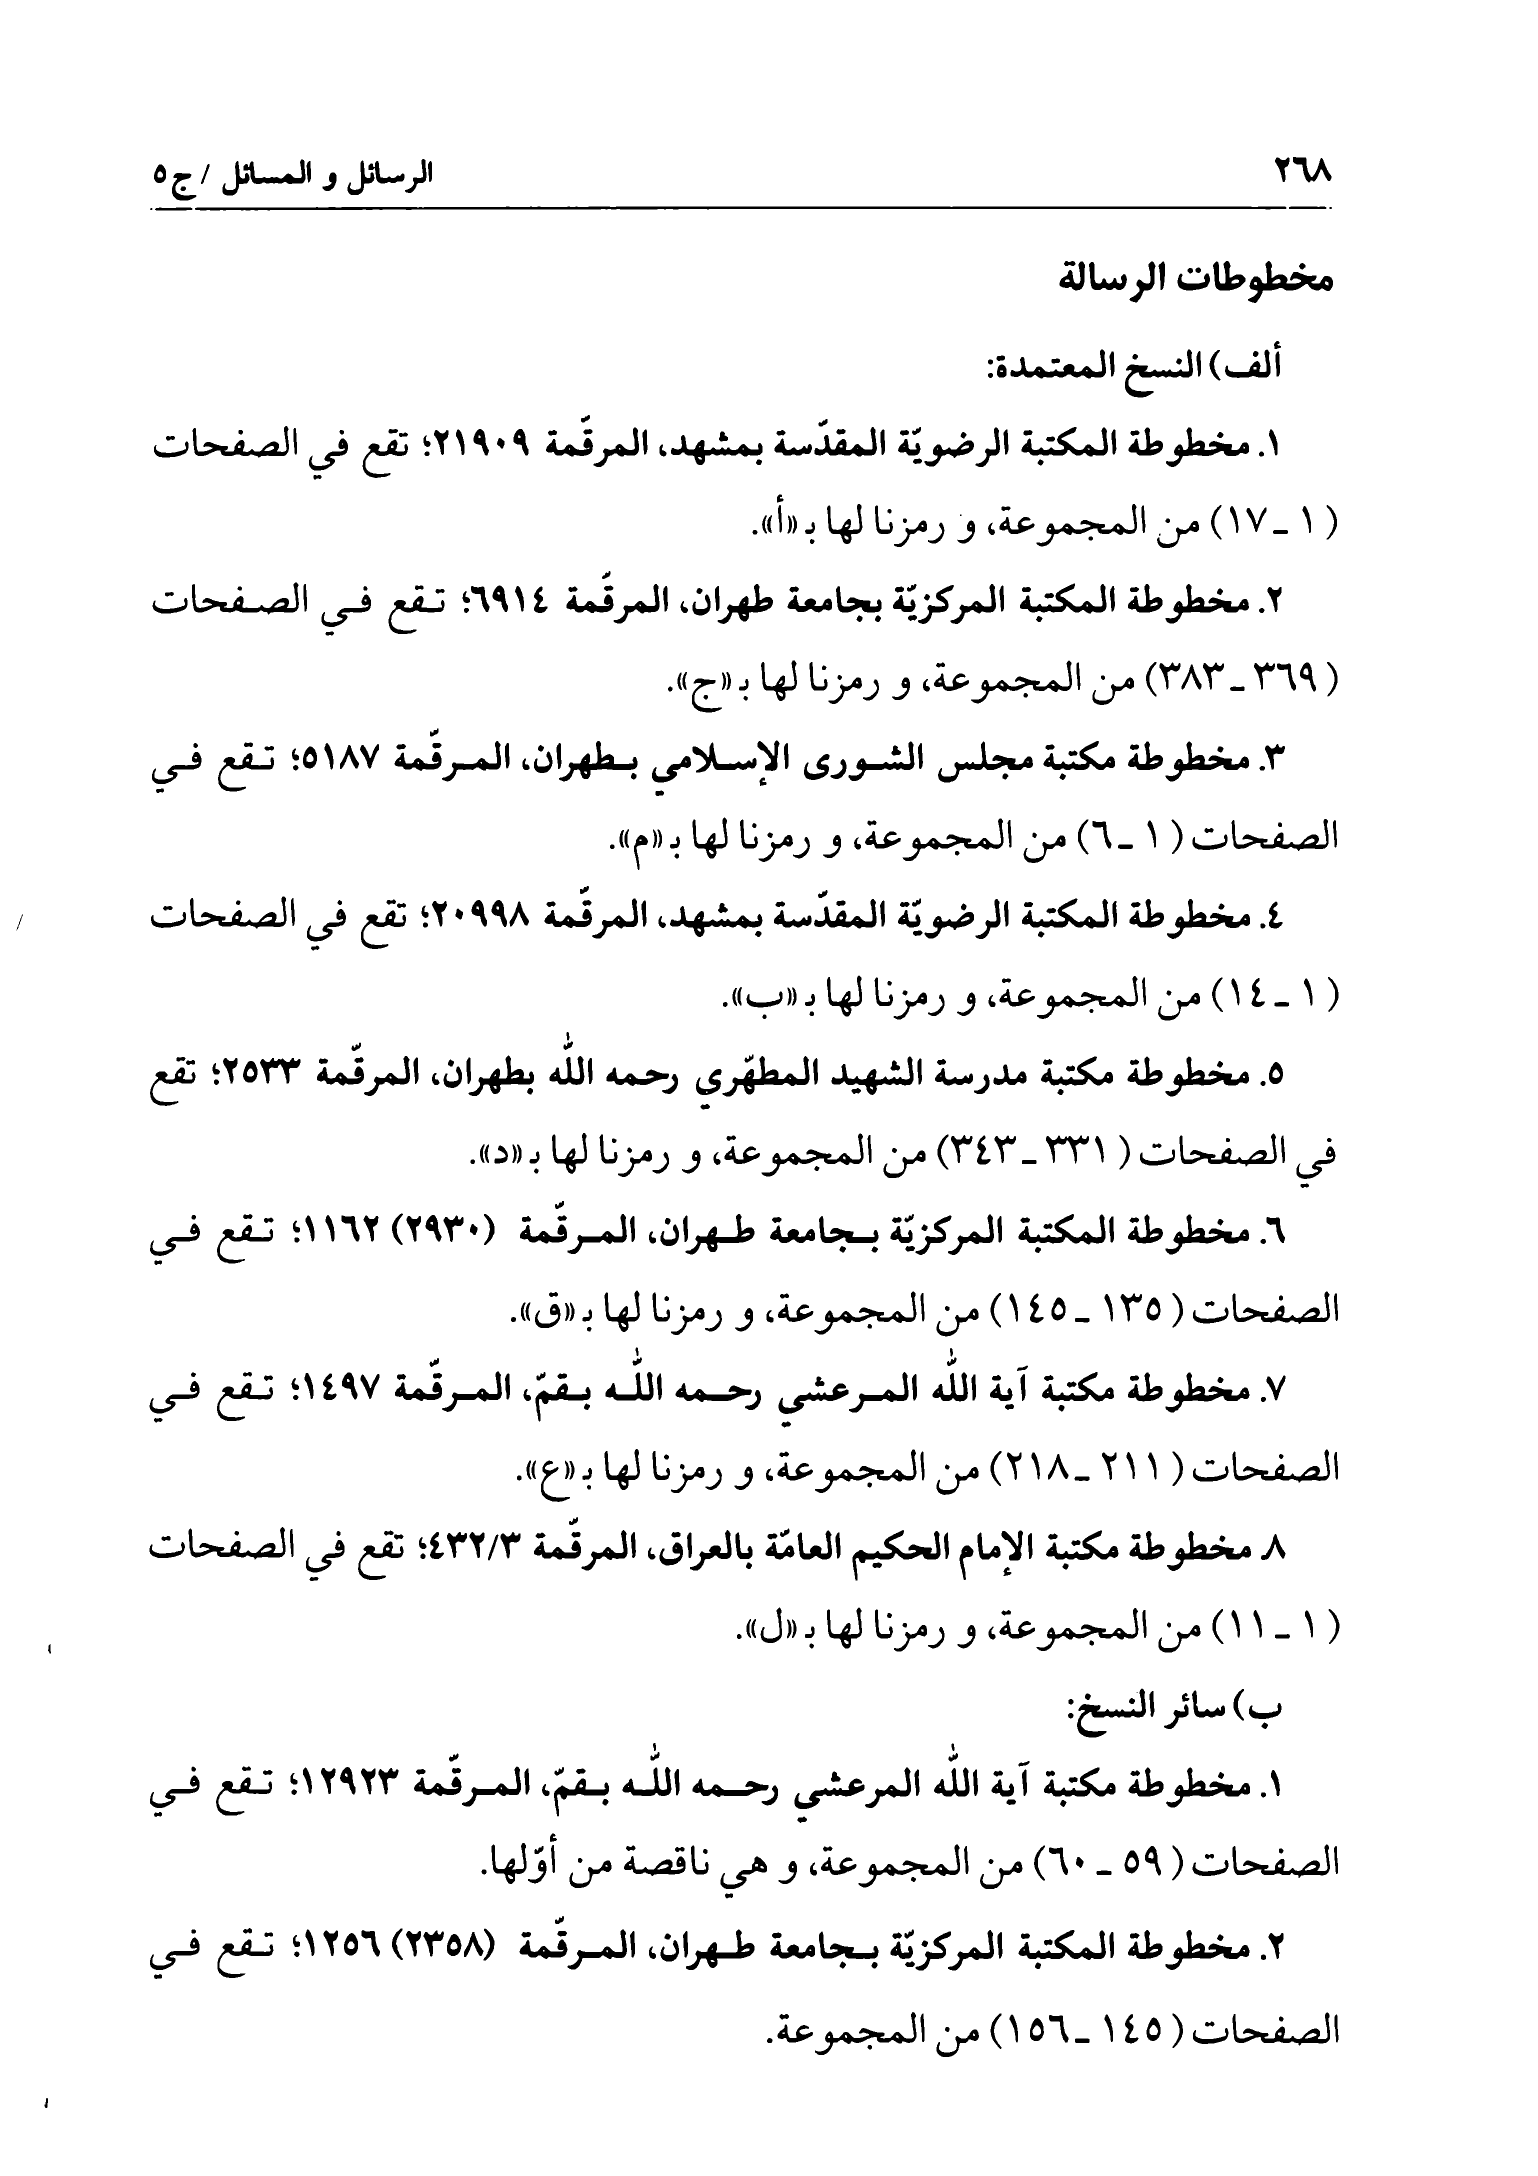 ٢٦٨
الرسائل و المسائل / ج٥
مخطوطات الرسالة
ألف) النسخ المعتمدة:
١. مخطوطة المكتبة الرضويّة المقدّسة بمشهد، المرقّمة ٢١٩٠٩؛ تقع في الصفحات
(١ ـ ١٧) من المجموعة، و رمزنا لها بـ «أ».
٢. مخطوطة المكتبة المركزيّة بجامعة طهران، المرقّمة ٦٩١٤؛ تـقع فـي الصـفحات
(٣٦٩ ـ ٣٨٣) من المجموعة، و رمزنا لها بـ «ج».
٣. مخطوطة مكتبة مجلس الشـورى الإسـلامي بـطهران، المـرقّمة ٥١٨٧؛ تـقع فـي
الصفحات (١ ـ ٦) من المجموعة، و رمزنا لها بـ «م».
٤. مخطوطة المكتبة الرضويّة المقدّسة بمشهد، المرقّمة ٢٠٩٩٨؛ تقع في الصفحات
(١ ـ ١٤) من المجموعة، و رمزنا لها بـ «ب».
٥. مخطوطة مكتبة مدرسة الشهيد المطهّري رحمه الله بطهران، المرقّمة ٢٥٣٣؛ تقع
في الصفحات (٣٣١ ـ ٣٤٣) من المجموعة، و رمزنا لها بـ «د».
٦. مخطوطة المكتبة المركزيّة بـجامعة طـهران، المـرقّمة (٢٩٣٠) ١١٦٢؛ تـقع فـي
الصفحات (١٣٥ ـ ١٤٥) من المجموعة، و رمزنا لها بـ «ق».
٧. مخطوطة مكتبة آية الله المـرعشي رحـمه اللـه بـقمّ، المـرقّمة ١٤٩٧؛ تـقع فـي
الصفحات (٢١١ ـ ٢١٨) من المجموعة، و رمزنا لها بـ «ع».
٨. مخطوطة مكتبة الإمام الحكيم العامّة بالعراق، المرقّمة ٤٣٢/٣؛ تقع في الصفحات
(١ ـ ١١) من المجموعة، و رمزنا لها بـ «ل».
ب) سائر النسخ:
١. مخطوطة مكتبة آية الله المرعشي رحـمه اللـه بـقمّ، المـرقّمة ١٢٩٢٣؛ تـقع فـي
الصفحات (٥٩ ـ ٦٠) من المجموعة، و هي ناقصة من أوّلها.
٢. مخطوطة المكتبة المركزيّة بـجامعة طـهران، المـرقّمة (٢٣٥٨) ١٢٥٦؛ تـقع فـي
الصفحات (١٤٥ ـ ١٥٦) من المجموعة.